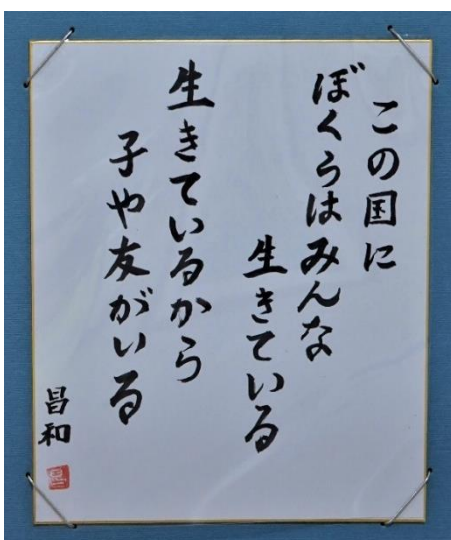 この国に
ぼくらはみんな
生きている
生きているから
子や友がいる
昌和